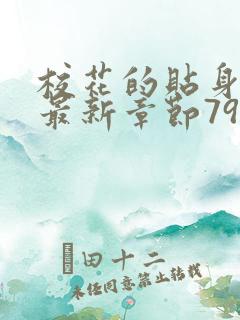 校花的贴身
最新章节79
田十二
未经同意禁止转载